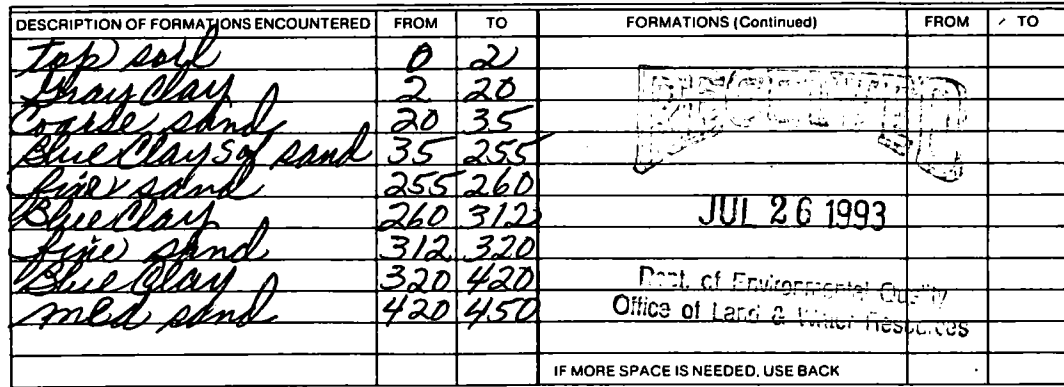 DESCRIPTION OF FORMATIONS ENCOUNTERED FROM TO FORMATIONS (Continued) FROM TO
Top soil 0 2
Gray Clay 2 20
Coarse sand 20 35
Blue Clay S of sand 35 255
fine sand 255 260
Blue Clay 260 312
fine sand 312 320
Blue Clay 320 420
med sand 420 450
JUL 26 1993
Dept. of Environmental Quality
Office of Land & Water Resources
IF MORE SPACE IS NEEDED, USE BACK